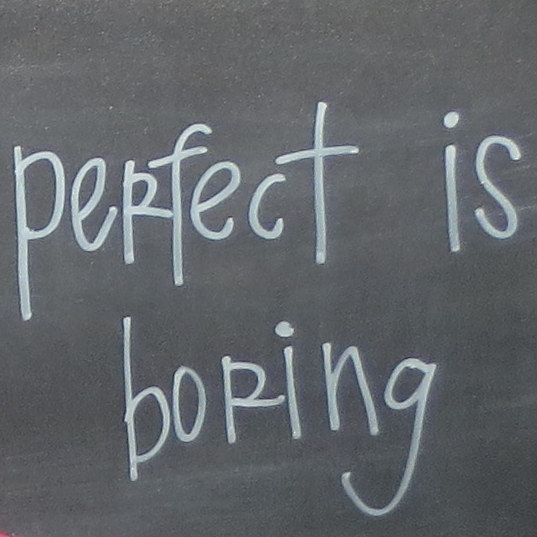 perfect is
boring